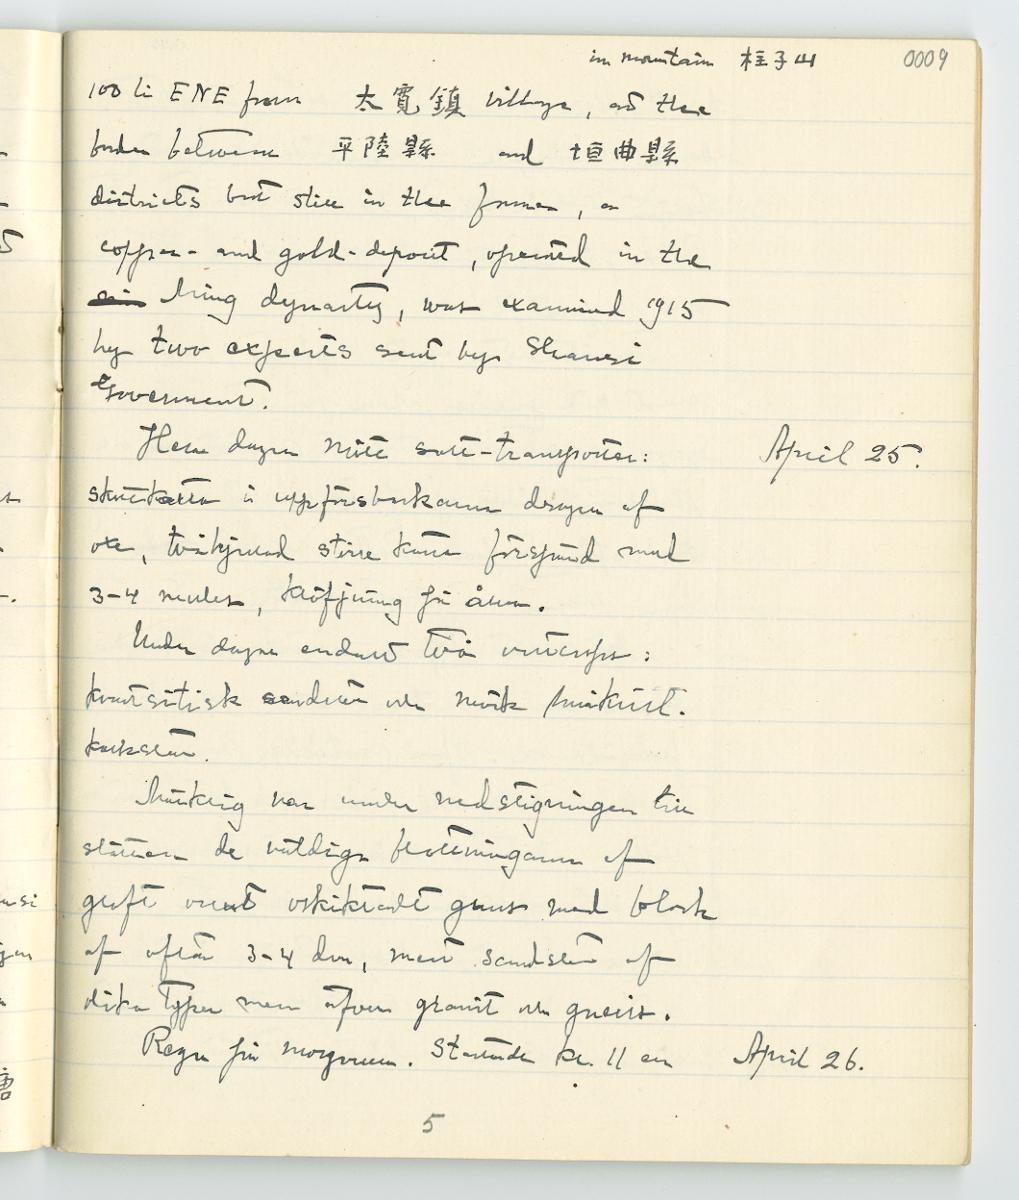 in mountain 柱子山 0009
100 li ENE from 太寬鎮 village, at the
border between 平陸縣 and 垣曲縣
districts but still in the former, a
copper- and gold-deposit, opened in the
Ming dynasty, was examined 1915
by two experts sent by Shansi
Government.
Hela dagen mött salt-transporter: April 25.
i uppförsbackarna dragen af
oxe, tvåhjulad större kärra förspänd med
3-4 mulor, klöfjning på åsnor.
Under dagen endast två:
kvartsitisk sandsten och mörk
kalksten.
Märklig var under nedstigningen till
slätten de väldiga af
groft oskiktadt grus med block
af oftast 3-4 dm, mest sandsten af
olika typer men äfven granit och gneiss.
Regn på morgonen. Startade kl. 11 en April 26.
5